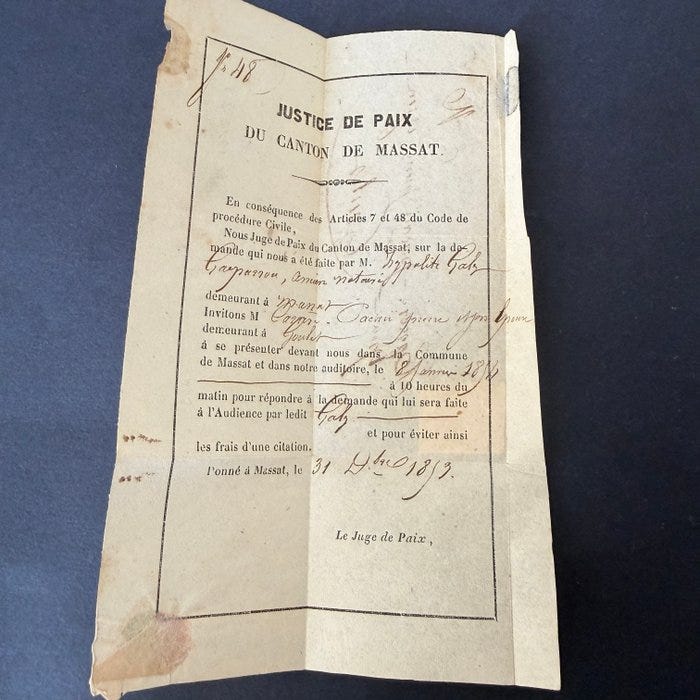 No 48
JUSTICE DE PAIX
DU CANTON DE MASSAT.
En conséquence des Articles 7 et 48 du Code de
procédure Civile,
Nous Juge de Paix du Canton de Massat, sur la de-
mande qui nous a été faite par M. hyppolite Galy
notaire
demeurant à Massat
Invitons M
demeurant à
à se présenter devant nous dans la Commune
de Massat et dans notre auditoire, le 8 Janvier 1854
à 10 heures du
matin pour répondre à la demande qui lui sera faite
à l'Audience par ledit Galy
et pour éviter ainsi
les frais d'une citation.
Donné à Massat, le 31 Xbre 1853.
Le Juge de Paix,